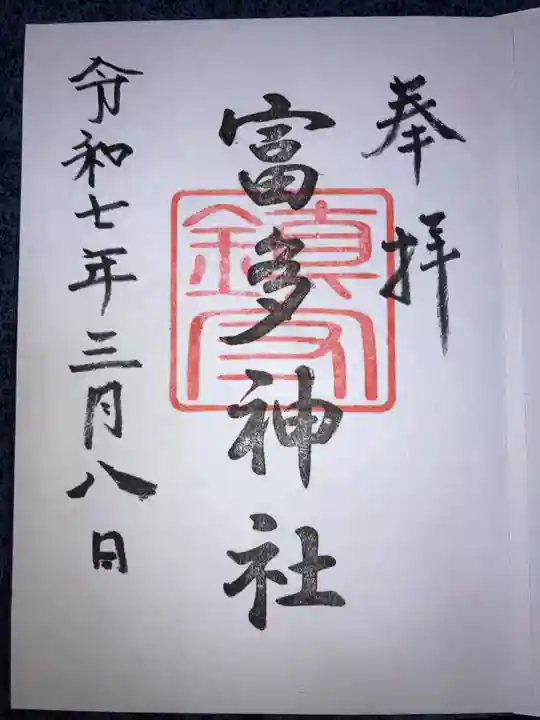 奉拝
富多神社
鎮守
令和七年三月八日